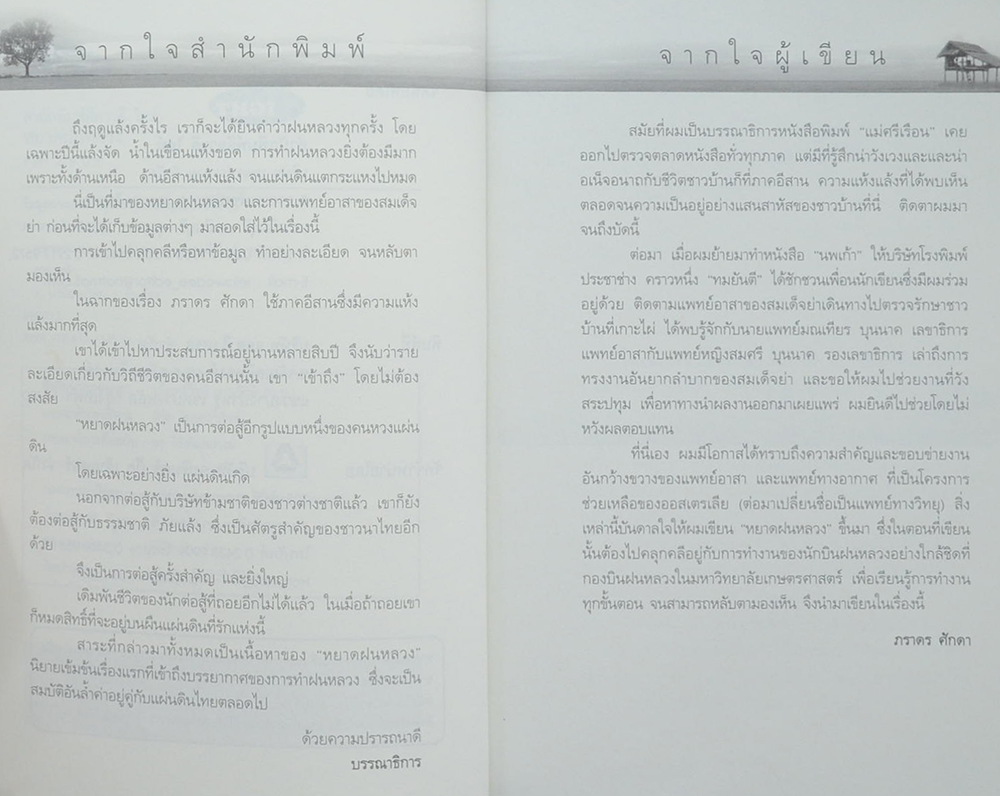 จากใจสำนักพิมพ์
ถึงฤดูแล้งครั้งไร เราก็จะได้ยินคำว่าฝนหลวงทุกครั้ง โดย
เฉพาะปีนี้แล้งจัด น้ำในเขื่อนแห้งขอด การทำฝนหลวงยิ่งต้องมีมาก
เพราะทั้งด้านเหนือ ด้านอีสานแห้งแล้ง จนแผ่นดินแตกระแหงไปหมด
นี่เป็นที่มาของหยาดฝนหลวง และการแพทย์อาสาของสมเด็จ
ย่า ก่อนที่จะได้เก็บข้อมูลต่างๆ มาสอดใส่ไว้ในเรื่องนี้
การเข้าไปคลุกคลีหรือหาข้อมูล ทำอย่างละเอียด จนหลับตา
มองเห็น
ในฉากของเรื่อง ภราดร ศักดา ใช้ภาคอีสานซึ่งมีความแห้ง
แล้งมากที่สุด
เขาได้เข้าไปหาประสบการณ์อยู่นานหลายสิบปี จึงนับว่าราย
ละเอียดเกี่ยวกับวิถีชีวิตของคนอีสานนั้น เขา “เข้าถึง” โดยไม่ต้อง
สงสัย
“หยาดฝนหลวง” เป็นการต่อสู้อีกรูปแบบหนึ่งของคนหวงแผ่น
ดิน
โดยเฉพาะอย่างยิ่ง แผ่นดินเกิด
นอกจากต่อสู้กับบริษัทข้ามชาติของชาวต่างชาติแล้ว เขาก็ยัง
ต้องต่อสู้กับธรรมชาติ ภัยแล้ง ซึ่งเป็นศัตรูสำคัญของชาวนาไทยอีก
ด้วย
จึงเป็นการต่อสู้ครั้งสำคัญ และยิ่งใหญ่
เดิมพันชีวิตของนักต่อสู้ที่ถอยอีกไม่ได้แล้ว ในเมื่อถ้าถอยเขา
ก็หมดสิทธิ์ที่จะอยู่บนผืนแผ่นดินที่รักแห่งนี้
สาระที่กล่าวมาทั้งหมดเป็นเนื้อหาของ “หยาดฝนหลวง”
นิยายเข้มข้นเรื่องแรกที่เข้าถึงบรรยากาศของการทำฝนหลวง ซึ่งจะเป็น
สมบัติอันล้ำค่าอยู่คู่กับแผ่นดินไทยตลอดไป
ด้วยความปรารถนาดี
บรรณาธิการ
จากใจผู้เขียน
สมัยที่ผมเป็นบรรณาธิการหนังสือพิมพ์ “แม่ศรีเรือน” เคย
ออกไปตรวจตลาดหนังสือทั่วทุกภาค แต่มีที่รู้สึกน่าวังเวงและและน่า
อเน็จอนาถกับชีวิตชาวบ้านก็ที่ภาคอีสาน ความแห้งแล้งที่ได้พบเห็น
ตลอดจนความเป็นอยู่อย่างแสนสาหัสของชาวบ้านที่นี่ ติดตาผมมา
จนถึงบัดนี้
ต่อมา เมื่อผมย้ายมาทำหนังสือ “นพเก้า” ให้บริษัทโรงพิมพ์
ประชาช่าง คราวหนึ่ง “ทมยันตี” ได้ชักชวนเพื่อนนักเขียนซึ่งมีผมร่วม
อยู่ด้วย ติดตามแพทย์อาสาของสมเด็จย่าเดินทางไปตรวจรักษาชาว
บ้านที่เกาะไผ่ ได้พบรู้จักกับนายแพทย์มณเฑียร บุนนาค เลขาธิการ
แพทย์อาสากับแพทย์หญิงสมศรี บุนนาค รองเลขาธิการ เล่าถึงการ
ทรงงานอันยากลำบากของสมเด็จย่า และขอให้ผมไปช่วยงานที่วัง
สระปทุม เพื่อหาทางนำผลงานออกมาเผยแพร่ ผมยินดีไปช่วยโดยไม่
หวังผลตอบแทน
ที่นี่เอง ผมมีโอกาสได้ทราบถึงความสำคัญและขอบข่ายงาน
อันกว้างขวางของแพทย์อาสา และแพทย์ทางอากาศ ที่เป็นโครงการ
ช่วยเหลือของออสเตรเลีย (ต่อมาเปลี่ยนชื่อเป็นแพทย์ทางวิทยุ) สิ่ง
เหล่านี้บันดาลใจให้ผมเขียน “หยาดฝนหลวง” ขึ้นมา ซึ่งในตอนที่เขียน
นั้นต้องไปคลุกคลีอยู่กับการทำงานของนักบินฝนหลวงอย่างใกล้ชิดที่
กองบินฝนหลวงในมหาวิทยาลัยเกษตรศาสตร์ เพื่อเรียนรู้การทำงาน
ทุกขั้นตอน จนสามารถหลับตามองเห็น จึงนำมาเขียนในเรื่องนี้
ภราดร ศักดา